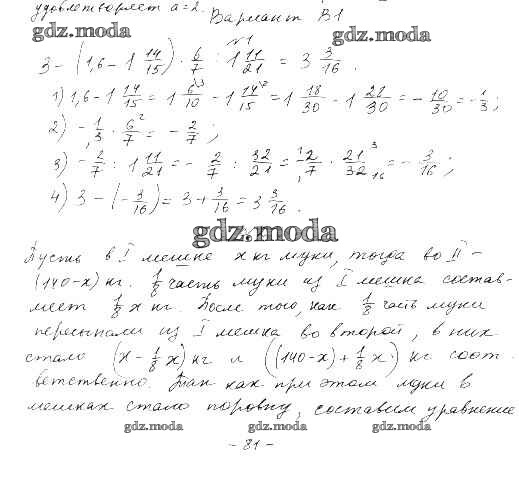 удовлетворяет a=2.
Вариант В1
gdz.moda gdz.moda
№1
3 - (1,6 - 1 14/15) · 6/7 : 1 11/21 = 3 3/16.
1) 1,6 - 1 14/15 = 1 6/10 - 1 14/15 = 1 18/30 - 1 28/30 = - 10/30 = - 1/3;
2) - 1/3 · 6/7 = - 2/7;
3) - 2/7 : 1 11/21 = - 2/7 : 32/21 = - 2/7 · 21/32 = - 3/16;
4) 3 - (- 3/16) = 3 + 3/16 = 3 3/16.
gdz.moda
Пусть в I мешке x кг муки, тогда во II -
(140-x) кг. 1/8 часть муки из I мешка состав-
ляет 1/8 x кг. После того, как 1/8 часть муки
пересыпали из I мешка во второй, в них
стало (x - 1/8 x) кг и ((140-x) + 1/8 x) кг соот-
ветственно. Так как при этом муки в
мешках стало поровну, составим уравнение
gdz.moda gdz.moda gdz.moda
- 81 -